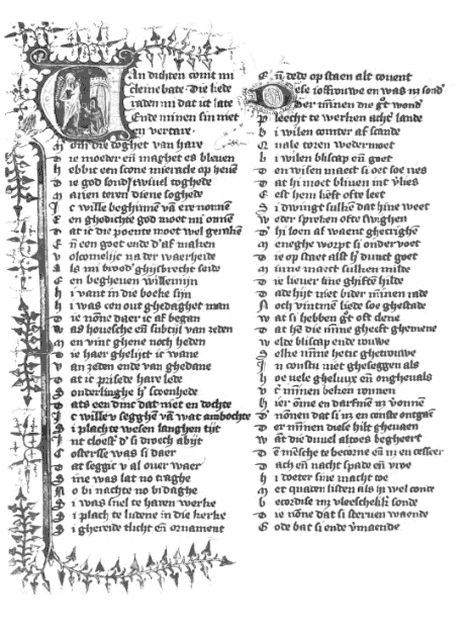 Van dichten comt mi
cleine bate · Die liede
raden mi dat ict late
Ende minen sin niet
en vertare
Om die doghet van hare
Die moeder en̄ maghet es bleuen
Hebbic een scone mieracle op heuē
Die god sonđ twiuel toghede
Marien teren diene soghede
Ic wille beghinnē van ere nonnē
Een ghedichte god moet mi onnē
Dat ic die poente moet wel geraken
En̄ een goet ende d'af maken
Volcomelijc na der waerheide
Als mi broed' ghijsbrecht seide
Een begheuen willemijn
Hi vant in die boeke sijn
Hi was een out ghedaghet man
Die nōne daer ic af began
Was houesche en̄ subtijl van zeden
Men vint ghene noch heden
Die haer ghelijct ic wane
Van zeden ende van ghedane
Dat ic prisede hare lede
Sonderlinghe h' scoenhede
Dats een dinc dat niet en dochte
Ic wille v segghē vā wat ambochte
Si plach te wesen langhen tijt
Int cloest' d' si droech abijt
Costersse was si daer
Dat seggic v al ouer waer
Sine was lat no traghe
No bi nachte no bi daghe
Si was snel te haren werke
Si plach te ludene in die kerke
Si ghereide tlicht en̄ ornament
En̄ dede op staen alt couent
Dese ioffrouwe en was nz sond'
Der mīnen die g't wond'
Pleecht te werken achť lande
Bi wilen comter af scande
Quale toren wedermoet
Bi wilen bliscap en̄ goet
Den wisen maect si oec soe ries
Dat hi moet bliuen int vlies
Eest hem lieft ofte leet
Si dwingt sulken dat hine weet
Weder spreken ofte swighen
Daer hi loen af waent ghecrighen
Meneghe worpt si onder voet
Die op staet alst h' dunct goet
Minne maect sulken milde
Die lieuer sine ghiftē hilde
Dade hijt niet bider mīnen rade
Noch vintmē liede soe ghestade
Wat si hebben g't oft clene
Dat hē die mīne gheeft ghemene
Welde bliscap ende rouwe
Selke mīne hetic ghetrouwe
In constu niet gheseggen als
Hoe vele gheluux en̄ ongheuals
Vť mīnen beken ronnen
Hier ōme en darfmē nz vonnē
D' nōnen dat si nz en conste ontgaē
Der mīnen diese hilt gheuaen
Want die duuel altoes begheert
Den mēsche te becorne en̄ nz en cesseert
Dach en̄ nacht spade en̄ vroe
Hi doeter sine macht toe
Met quaden listen als hi wel conde
Becordise nz vleescheliker sonde
Die nōne dat si steruen waende
Gode bat si ende v'maende